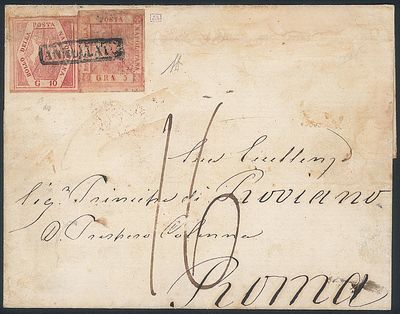 BOLLO DELLA POSTA NAPOLETANA
G 10
POSTA
GRA 5
ANNULLATO
Sua Eccellenza
Sig.r Principe di Roviano
D. Prospero Colonna
16
Roma